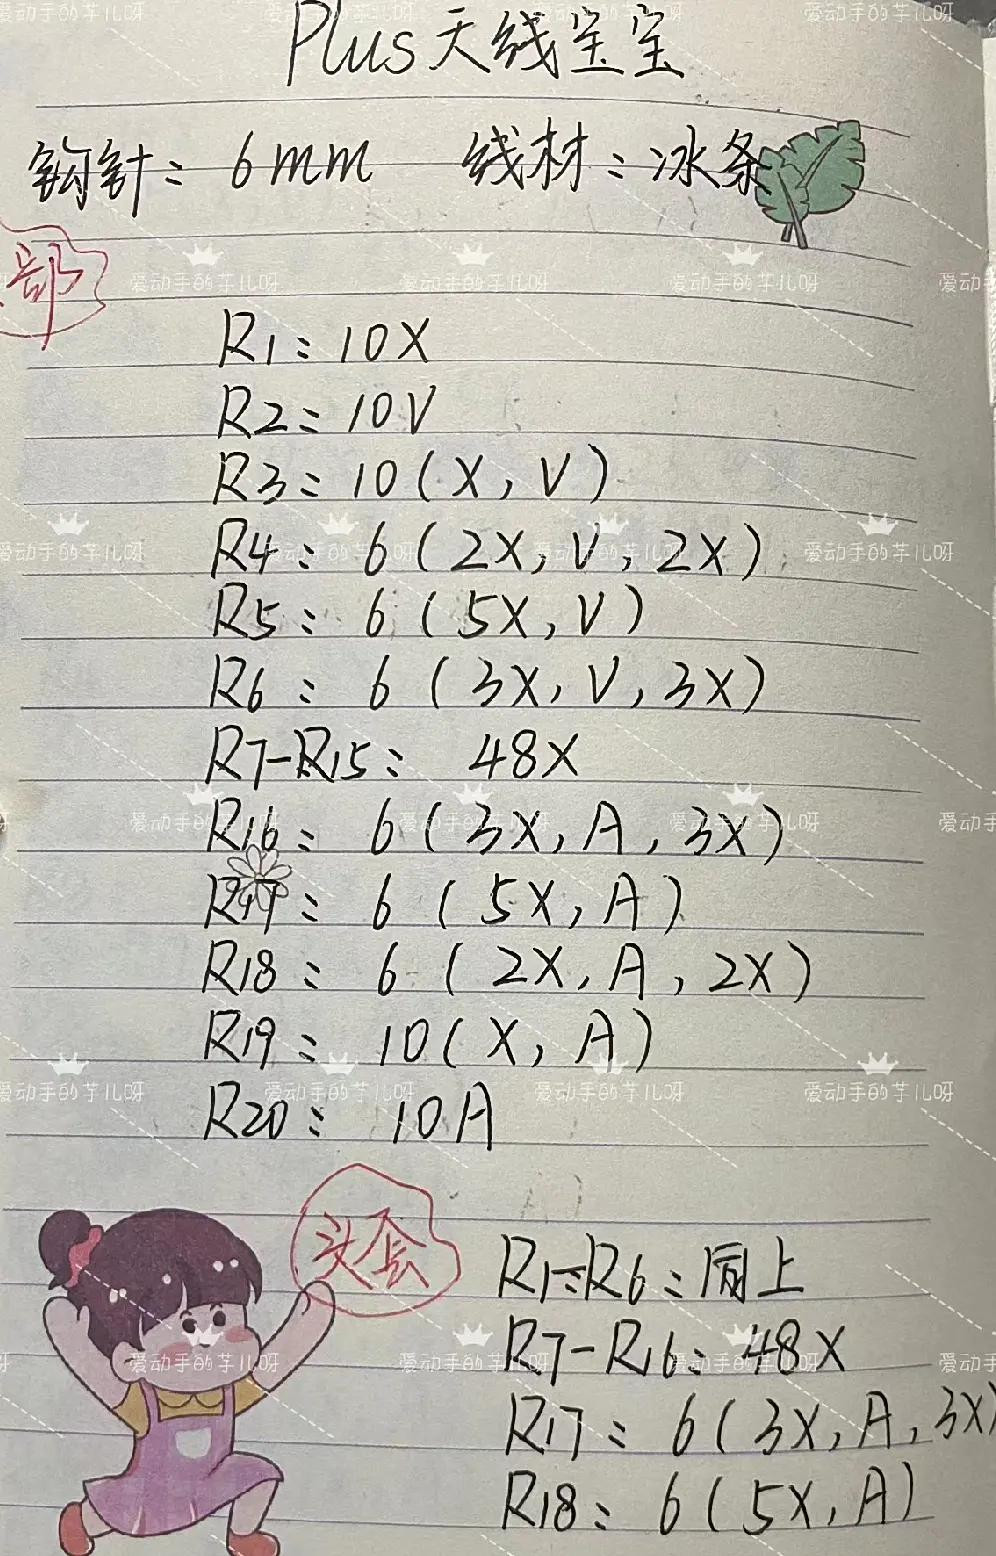 Plus天线宝宝
钩针：6mm 线材：冰条
部
R1：10X
R2：10V
R3：10(X，V)
R4：6(2X，V，2X)
R5：6(5X，V)
R6：6(3X，V，3X)
R7-R15：48X
R16：6(3X，A，3X)
R17：6(5X，A)
R18：6(2X，A，2X)
R19：10(X，A)
R20：10A
头套
R1-R6：同上
R7-R16：48X
R17：6(3X，A，3X)
R18：6(5X，A)
爱动手的芋儿呀